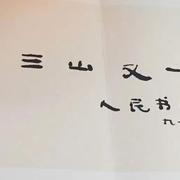 三山又一
人民书
九